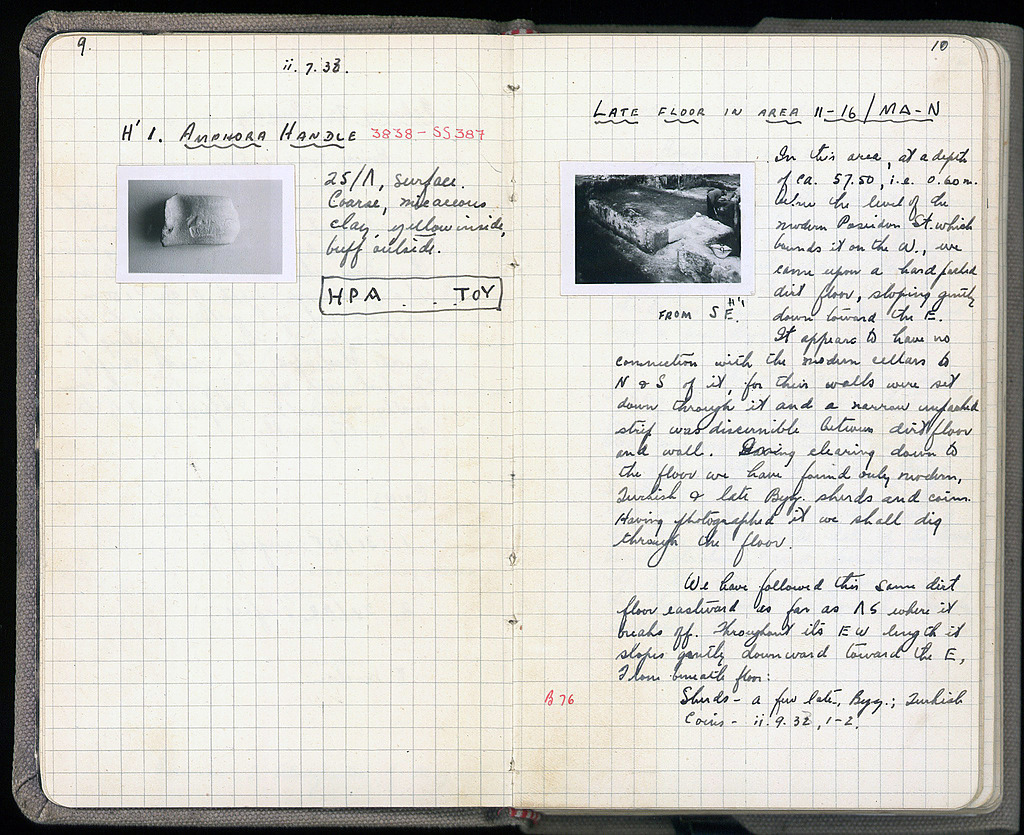 9.
ii. 7. 38.
H' 1. AMPHORA HANDLE 3838 - SS 387
25/Λ, surface.
Coarse, micaceous
clay, yellow inside,
buff outside.
HPA . . TOY
10
LATE FLOOR IN AREA 11-16/MΔ-N
In this area, at a depth
of ca. 57.50, i.e. 0.60 m.
below the level of the
modern Poseidon St. which
bounds it on the W., we
came upon a hard packed
dirt floor, sloping gently
down toward the E.
It appears to have no
connection with the modern cellars to
N & S of it, for their walls were set
down through it and a narrow unpacked
strip was discernible between dirt floor
and wall. clearing down to
the floor we have found only modern,
Turkish & late Byz. sherds and coins.
Having photographed it we shall dig
through the floor.
FROM SE. H'1
We have followed this same dirt
floor eastward as far as ΛS where it
breaks off. Throughout its EW length it
slopes gently downward toward the E,
From beneath floor:
B 76
Sherds - a few late, Byz.; Turkish
Coins - ii. 9. 38, 1-2.